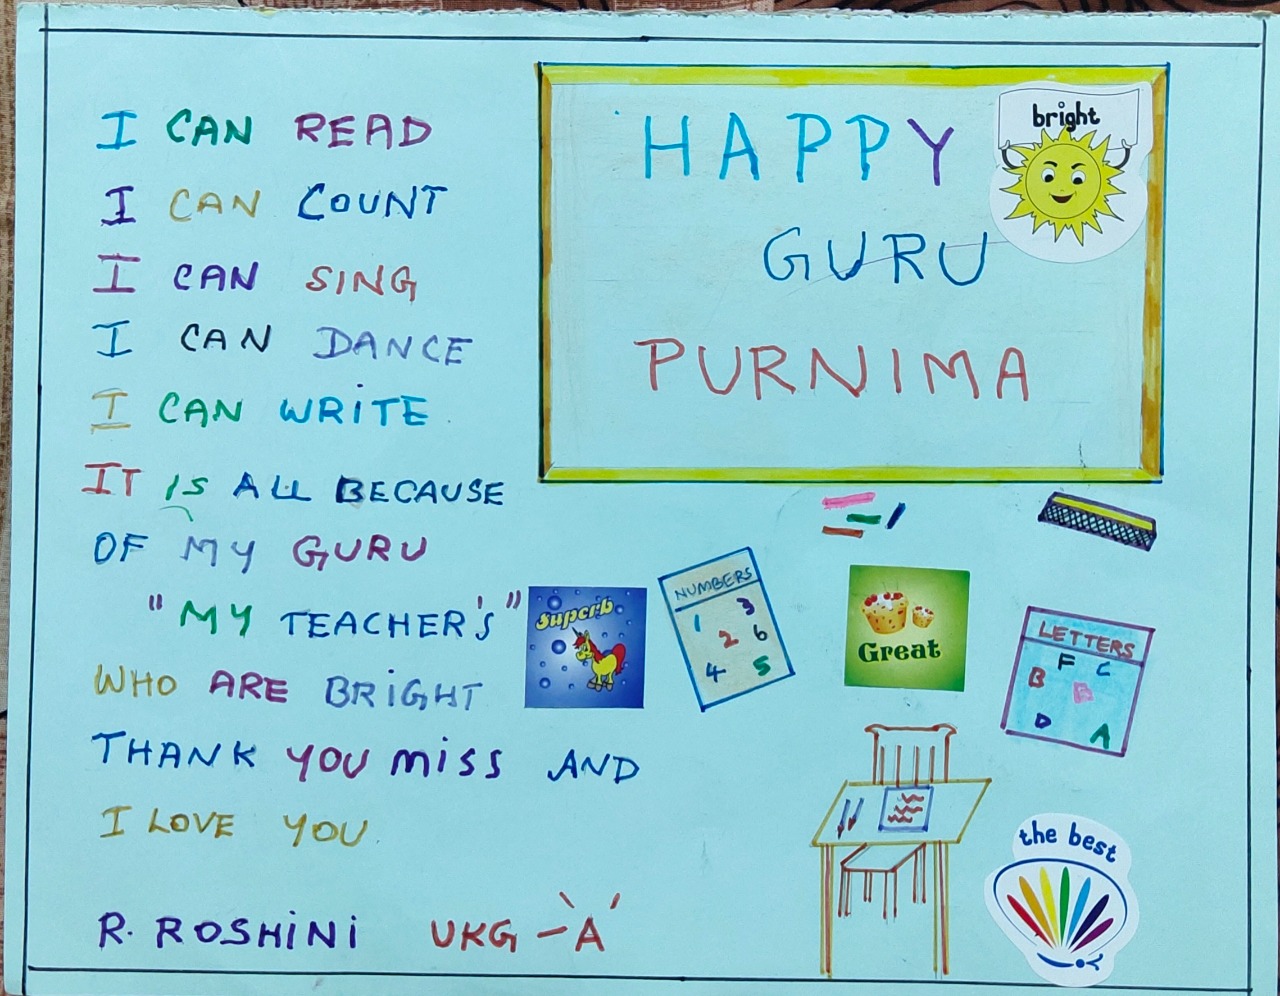 I CAN READ
I CAN COUNT
I CAN SING
I CAN DANCE
I CAN WRITE
IT IS ALL BECAUSE
OF MY GURU
"MY TEACHER'S"
WHO ARE BRIGHT
THANK YOU MISS AND
I LOVE YOU
R. ROSHINI UKG - 'A'
HAPPY
GURU
PURNIMA
bright
Superb
NUMBERS
1 3
2 6
4 5
Great
LETTERS
F C
B E
D A
the best